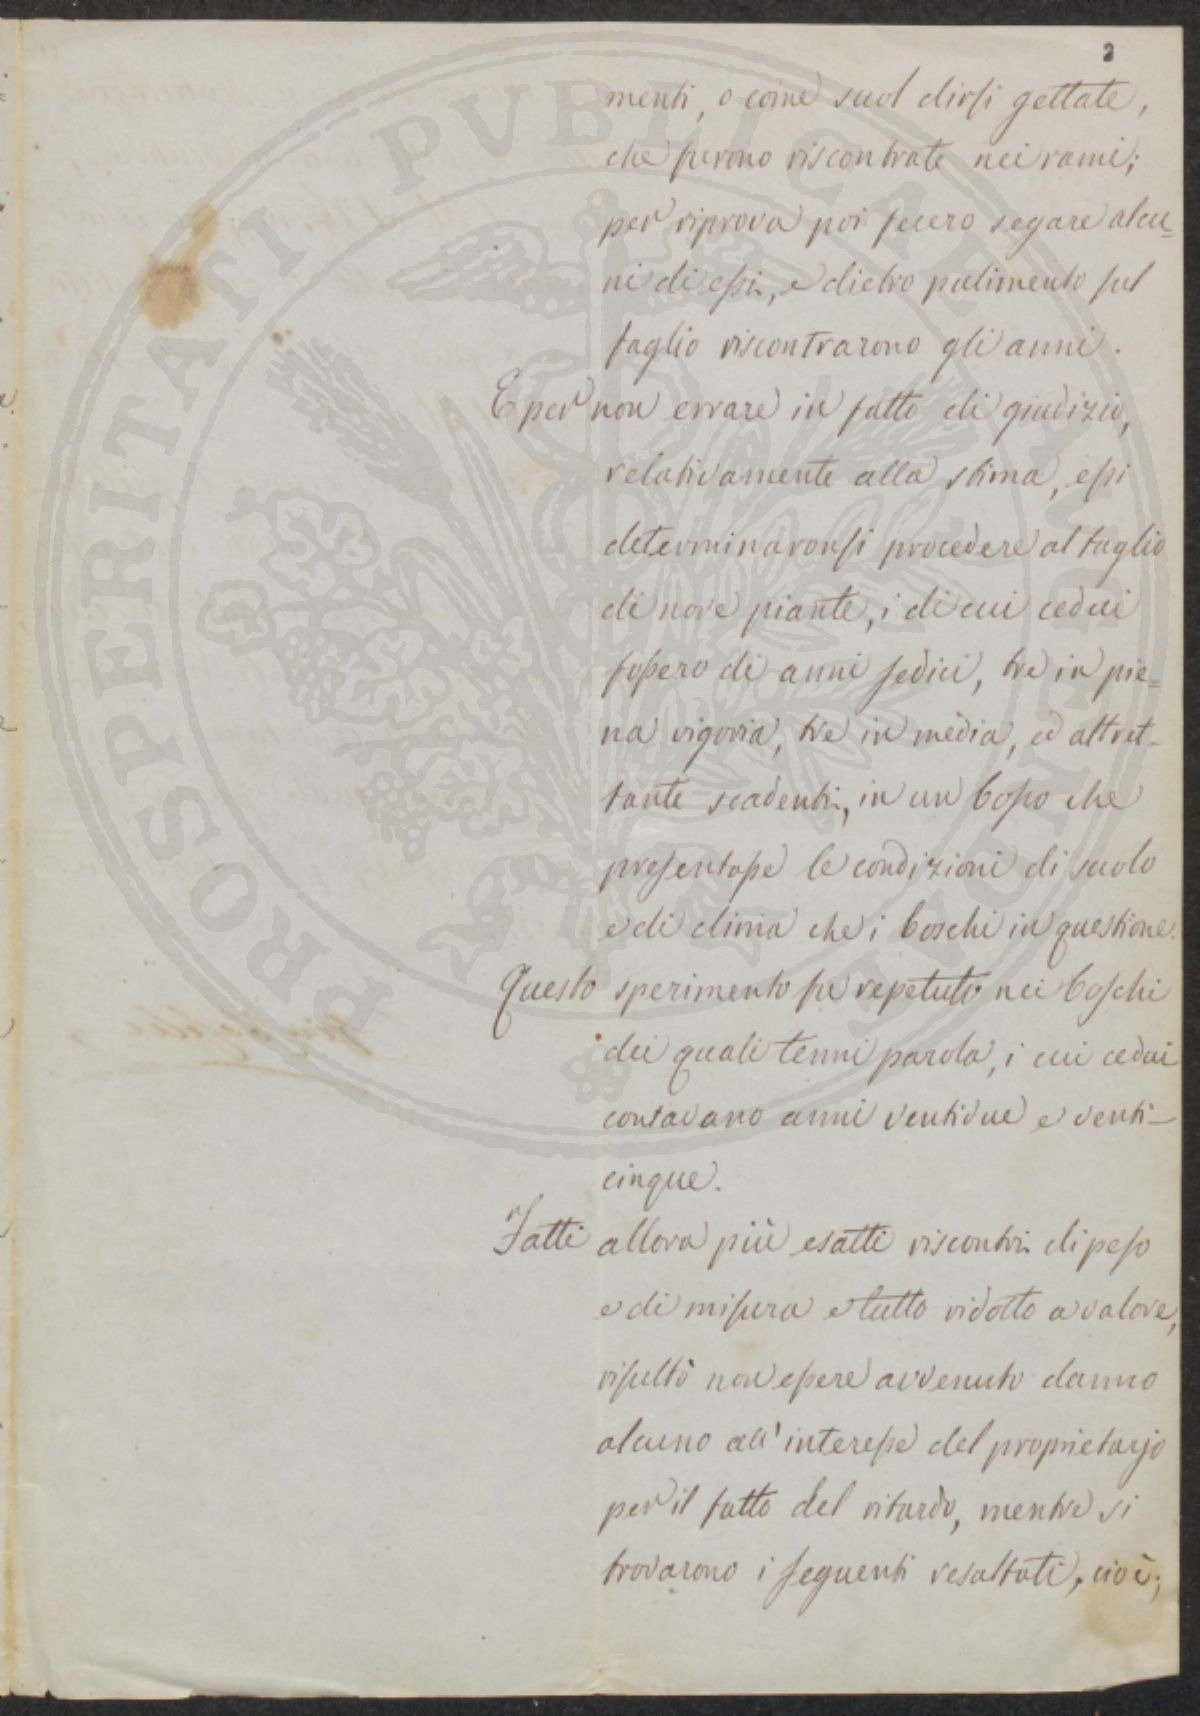 2
menti, o come suol dirsi gettate,
che furono riscontrate nei rami;
per riprova poi fecero segare alcu=
ni di essi, e dietro pulimento sul
taglio riscontrarono gli anni.
E per non errare in fatto di giudizio,
relativamente alla stima, essi
determinaronsi procedere al taglio
di nove piante, i di cui cedui
fossero di anni sedici, tre in pie=
na vigoria, tre in media, ed altret-
tante scadenti, in un bosco che
presentasse le condizioni di suolo
e di clima che i boschi in questione.
Questo sperimento fu repetuto nei boschi
dei quali tenni parola, i cui cedui
contavano anni ventidue e venti-
cinque.
Fatti allora più esatti riscontri di peso
e di misura e tutto ridotto a valore,
risultò non essere avvenuto danno
alcuno all'interesse del proprietarjo
per il fatto del ritardo, mentre si
trovarono i seguenti resultati, cioè;
PROSPERITATI PVBLICAE